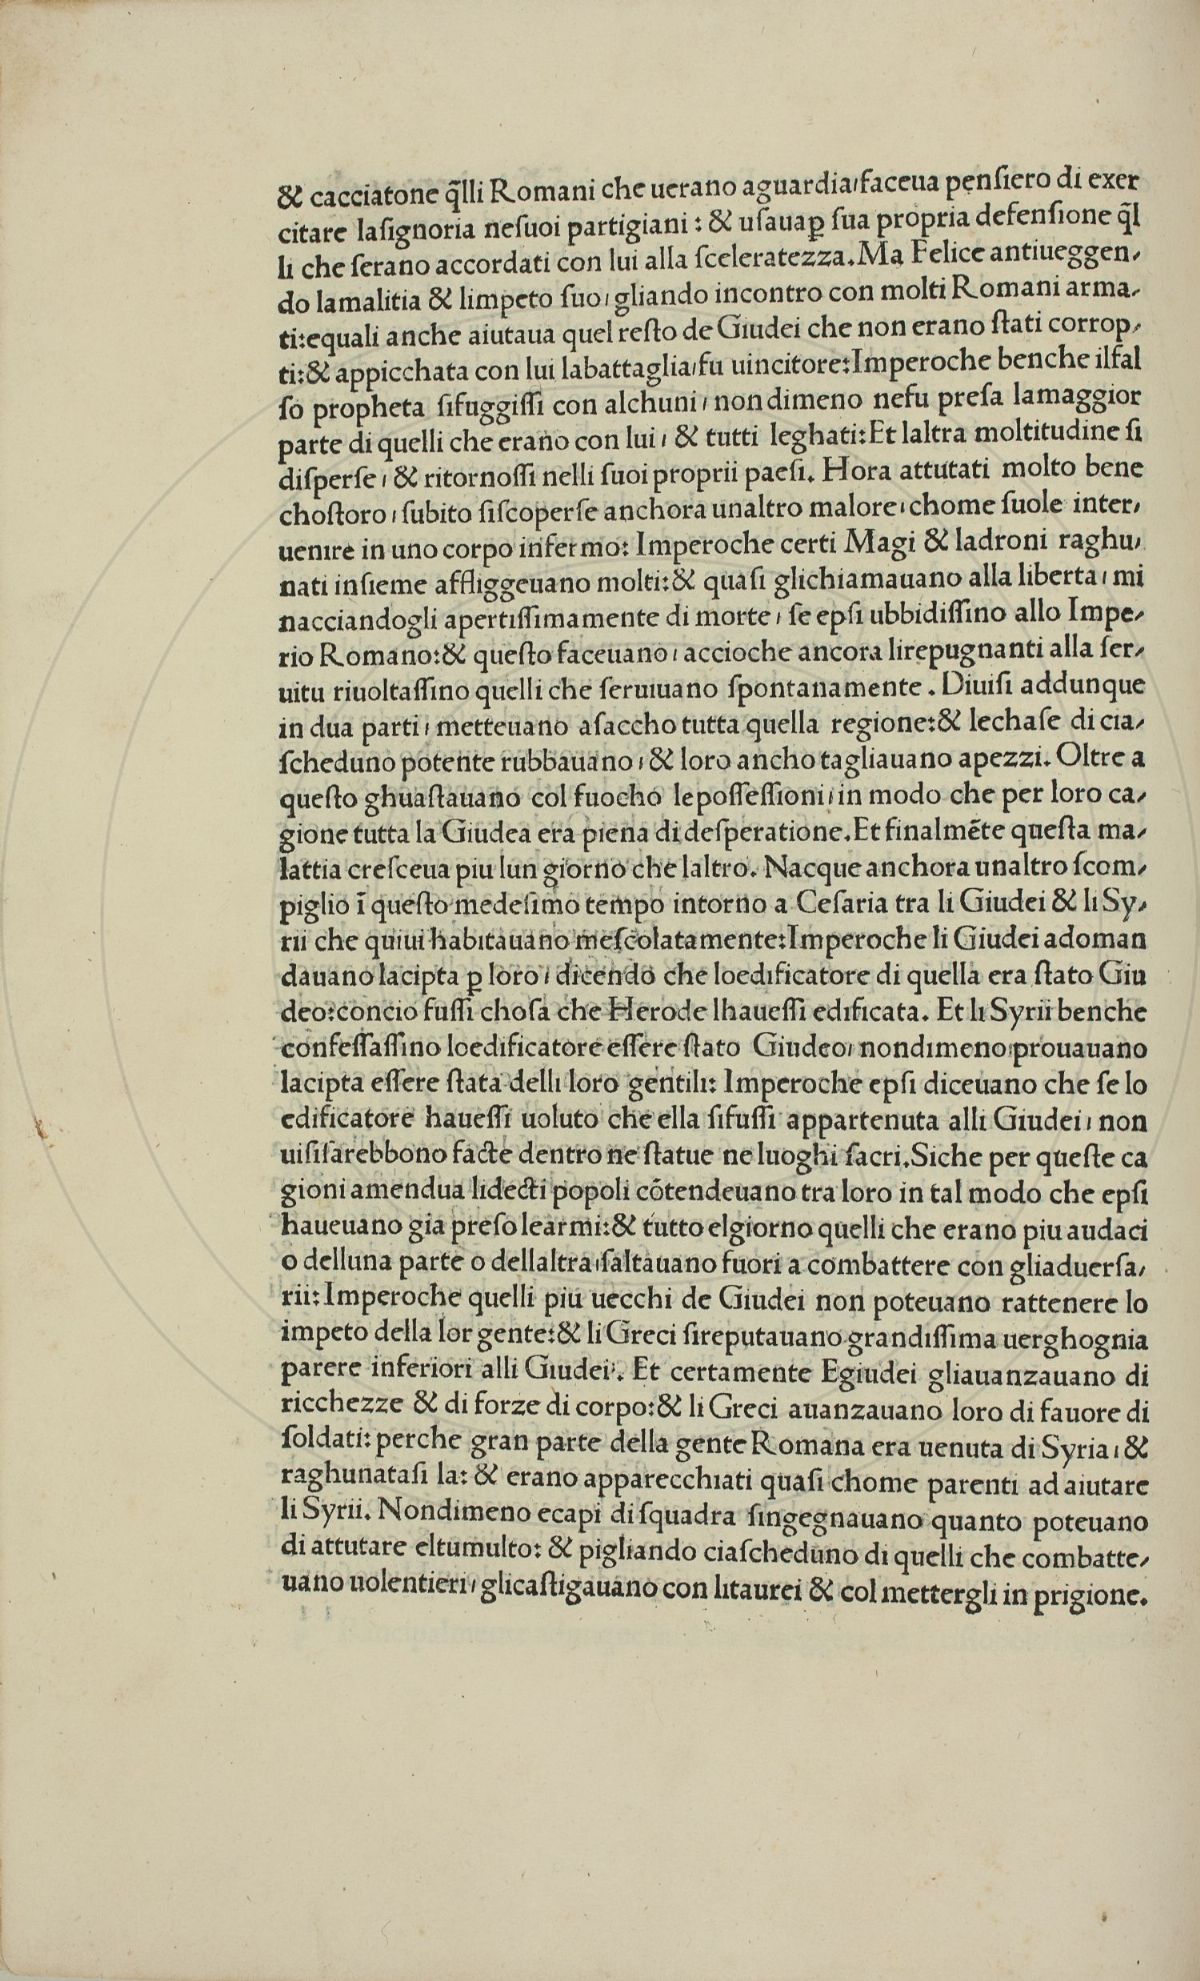 & cacciatone q̃lli Romani che uerano aguardia/faceua penſiero di exer
citare laſignoria neſuoi partigiani : & uſauaꝑ ſua propria defenſione q̃l
li che ſerano accordati con lui alla ſceleratezza.Ma Felice antiueggen/
do lamalitia & limpeto ſuo/gliando incontro con molti Romani arma/
ti:equali anche aiutaua quel reſto de Giudei che non erano ſtati corrop/
ti:& appicchata con lui labattaglia/fu uincitore:Imperoche benche ilfal
ſo propheta ſifuggiſſi con alchuni/nondimeno nefu preſa lamaggior
parte di quelli che erano con lui/ & tutti leghati:Et laltra moltitudine ſi
diſperſe/ & ritornoſſi nelli ſuoi proprii paeſi. Hora attutati molto bene
choſtoro/ſubito ſiſcoperſe anchora unaltro malore/chome ſuole inter/
uenire in uno corpo infermo: Imperoche certi Magi & ladroni raghu/
nati inſieme affliggeuano molti:& quaſi glichiamauano alla liberta/mi
nacciandogli apertiſſimamente di morte/ſe epſi ubbidiſſino allo Impe/
rio Romano:& queſto faceuano/accioche ancora lirepugnanti alla ſer/
uitu riuoltaſſino quelli che ſeruiuano ſpontanamente . Diuiſi addunque
in dua parti/metteuano aſaccho tutta quella regione:& lechaſe di cia/
ſcheduno potente rubbauano/& loro ancho tagliauano apezzi. Oltre a
queſto ghuaſtauano col fuocho lepoſſeſſioni/in modo che per loro ca/
gione tutta la Giudea era piena di deſperatione.Et finalmẽte queſta ma/
lattia creſceua piu lun giorno che laltro. Nacque anchora unaltro ſcom/
piglio ĩ queſto medeſimo tempo intorno a Ceſaria tra li Giudei & li Sy/
rii che quiui habitauano meſcolatamente:Imperoche li Giudei adoman
dauano lacipta ꝑ loro/dicendo che loedificatore di quella era ſtato Giu
deo:concio fuſſi choſa che Herode lhaueſſi edificata. Et li Syrii benche
confeſſaſſino loedificatore eſſere ſtato Giudeo/nondimeno prouauano
lacipta eſſere ſtata delli loro gentili: Imperoche epſi diceuano che ſe lo
edificatore haueſſi uoluto che ella ſifuſſi appartenuta alli Giudei/non
uiſiſarebbono facte dentro ne ſtatue ne luoghi ſacri.Siche per queſte ca
gioni amendua lidecti popoli cõtendeuano tra loro in tal modo che epſi
haueuano gia preſo learmi:& tutto elgiorno quelli che erano piu audaci
o delluna parte o dellaltra/ſaltauano fuori a combattere con gliaduerſa/
rii:Imperoche quelli piu uecchi de Giudei non poteuano rattenere lo
impeto della lor gente:& li Greci ſireputauano grandiſſima uerghognia
parere inferiori alli Giudei. Et certamente Egiudei gliauanzauano di
ricchezze & di forze di corpo:& li Greci auanzauano loro di fauore di
ſoldati:perche gran parte della gente Romana era uenuta di Syria/&
raghunataſi la: & erano apparecchiati quaſi chome parenti ad aiutare
li Syrii. Nondimeno ecapi di ſquadra ſingegnauano quanto poteuano
di attutare eltumulto: & pigliando ciaſcheduno di quelli che combatte/
uano uolentieri/glicaſtigauano con litaurei & col mettergli in prigione.